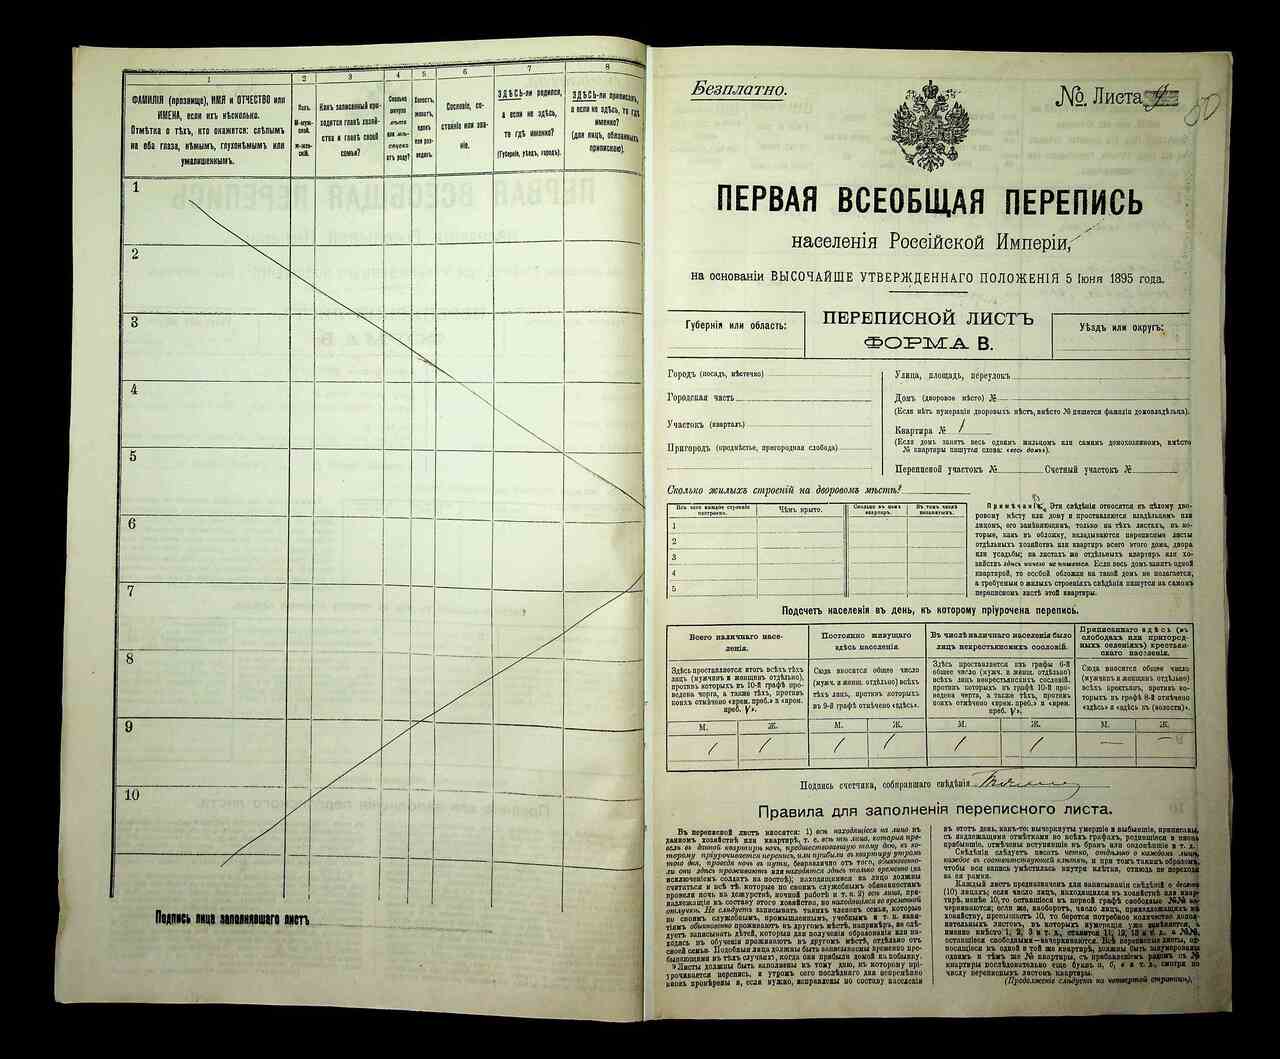 1 2 3 4 5 6 7 8
ФАМИЛІЯ (прозвище), ИМЯ и ОТЧЕСТВО или
ИМЕНА, если ихъ нѣсколько.
Отмѣтка о тѣхъ, кто окажется: слѣпымъ
на оба глаза, нѣмымъ, глухонѣмымъ или
умалишеннымъ.
Полъ.
М-муж-
ской.
ж-жен-
скій.
Какъ записанный при-
ходится главѣ хозяй-
ства и главѣ своей
семьи?
Сколько
минуло
лѣтъ
или мѣ-
сяцевъ
отъ роду?
Холостъ,
женатъ,
вдовъ
или раз-
веденъ.
Сословіе, со-
стояніе или зва-
ніе.
ЗДѢСЬ-ли родился,
а если не здѣсь,
то гдѣ именно?
(Губернія, уѣздъ, городъ).
ЗДѢСЬ-ли приписанъ,
а если не здѣсь, то гдѣ
именно?
(для лицъ, обязанныхъ
припискою).
1
2
3
4
5
6
7
8
9
10
Подпись лица заполнявшаго листъ
Безплатно.
№ Листа
80
ПЕРВАЯ ВСЕОБЩАЯ ПЕРЕПИСЬ
населенія Россійской Имперіи,
на основаніи ВЫСОЧАЙШЕ УТВЕРЖДЕННАГО ПОЛОЖЕНІЯ 5 Іюня 1895 года.
Губернія или область:
ПЕРЕПИСНОЙ ЛИСТЪ
ФОРМА В.
Уѣздъ или округъ:
Городъ (посадъ, мѣстечко)
Городская часть
Участокъ (кварталъ)
Пригородъ (предмѣстье, пригородная слобода)
Улица, площадь, переулокъ
Домъ (дворовое мѣсто) №
(Если нѣтъ нумераціи дворовыхъ мѣстъ, вмѣсто № пишется фамилія домовладѣльца).
Квартира № 1
(Если домъ занятъ весь однимъ жильцомъ или самимъ домохозяиномъ, вмѣсто
№ квартиры пишутся слова: «весь домъ»).
Переписной участокъ № Счетный участокъ №
Сколько жилыхъ строеній на дворовомъ мѣстѣ?
Изъ чего каждое строеніе
построено.
Чѣмъ крыто.
Сколько въ немъ
квартиръ.
Въ томъ числѣ
незанятыхъ.
1
2
3
4
5
Примѣчаніе. Эти свѣдѣнія относятся къ цѣлому дво-
ровому мѣсту или дому и проставляются владѣльцемъ или
лицомъ, его замѣняющимъ, только на тѣхъ листахъ, въ ко-
торые, какъ въ обложку, вкладываются переписные листы
отдѣльныхъ хозяйствъ или квартиръ всего этого дома, двора
или усадьбы; на листахъ же отдѣльныхъ квартиръ или хо-
зяйствъ здѣсь ничего не пишется. Если весь домъ занятъ одной
квартирой, то особой обложки на такой домъ не полагается,
а требуемыя о жилыхъ строеніяхъ свѣдѣнія пишутся на самомъ
переписномъ листѣ этой квартиры.
Подсчетъ населенія въ день, къ которому пріурочена перепись.
Всего наличнаго насе-
ленія.
Здѣсь проставляется итогъ всѣхъ тѣхъ
лицъ (мужчинъ и женщинъ отдѣльно),
противъ которыхъ въ 10-й графѣ про-
ведена черта, а также тѣхъ, противъ
коихъ отмѣчено «врем. преб.» и «врем.
преб. V».
Постоянно живущаго
здѣсь населенія.
Сюда вносится общее число
(мужч. и женщ. отдѣльно) всѣхъ
тѣхъ лицъ, противъ которыхъ
въ 9-й графѣ отмѣчено «здѣсь».
Въ числѣ наличнаго населенія было
лицъ некрестьянскихъ сословій.
Здѣсь проставляется изъ графы 6-й
общее число (мужч. и женщ. отдѣльно)
всѣхъ лицъ некрестьянскихъ сословій,
противъ которыхъ въ графѣ 10-й про-
ведена черта, а также тѣхъ, противъ
коихъ отмѣчено «врем. преб.» и «врем.
преб. V».
Приписаннаго здѣсь (въ
слободахъ или пригород-
ныхъ селеніяхъ) крестьян-
скаго населенія.
Сюда вносится общее число
(мужчинъ и женщинъ отдѣльно)
всѣхъ крестьянъ, противъ ко-
торыхъ въ графѣ 8-й отмѣчено
«здѣсь» и «здѣсь въ (волости)».
М. Ж. М. Ж. М. Ж. М. Ж.
1 1 1 1 1 1 — —
Подпись счетчика, собиравшаго свѣдѣнія
Правила для заполненія переписного листа.
Въ переписной листъ вносятся: 1) всѣ находящіеся на лицо въ
данномъ хозяйствѣ или квартирѣ, т. е. всѣ тѣ лица, которыя про-
вели въ данной квартирѣ ночь, предшествовавшую тому дню, къ ко-
торому пріурочивается перепись, или прибыли въ квартиру утромъ
того дня, проведя ночь въ пути, безразлично отъ того, обыкновенно-
ли они здѣсь проживаютъ или находятся здѣсь только временно (за
исключеніемъ солдатъ на постоѣ); находящимися на лицо должны
считаться и всѣ тѣ, которые по своимъ служебнымъ обязанностямъ
провели ночь на дежурствѣ, ночной работѣ и т. п. 2) всѣ лица, при-
надлежащія къ составу этого хозяйства, но находящіяся во временной
отлучкѣ. Не слѣдуетъ записывать такихъ членовъ семьи, которые
по своимъ служебнымъ, промышленнымъ, учебнымъ и т. п. заня-
тіямъ обыкновенно проживаютъ въ другомъ мѣстѣ, напримѣръ, не слѣ-
дуетъ записывать дѣтей, которыя для полученія образованія или на-
ходясь въ обученіи проживаютъ въ другомъ мѣстѣ, отдѣльно отъ
своей семьи. Подобныя лица должны быть записываемы временно пре-
бывающими въ тѣхъ случаяхъ, когда они прибыли домой на побывку.
Листы должны быть заполнены къ тому дню, къ которому прі-
урочивается перепись, и утромъ сего послѣдняго дня непремѣнно
вновь провѣрены и, если нужно, исправлены по составу населенія
въ этотъ день, какъ-то: вычеркнуты умершіе и выбывшіе, приписаны,
съ надлежащими отмѣтками во всѣхъ графахъ, родившіеся и вновь
прибывшіе, отмѣчены вступившіе въ бракъ или овдовѣвшіе и т. д.
Свѣдѣнія слѣдуетъ писать четко, отдѣльно о каждомъ лицѣ,
каждое въ соотвѣтствующей клѣткѣ, и при томъ такимъ образомъ,
чтобы вся запись умѣстилась внутри клѣтки, отнюдь не переходя
за ея рамки.
Каждый листъ предназначенъ для записыванія свѣдѣній о десяти
(10) лицахъ; если число лицъ, находящихся въ хозяйствѣ или квар-
тирѣ, менѣе 10, то оставшіеся въ первой графѣ свободные №№ за-
черкиваются; если же, наоборотъ, число лицъ, принадлежащихъ къ
хозяйству, превышаетъ 10, то берется потребное количество допол-
нительныхъ листовъ, въ которыхъ нумерація уже измѣняется, а
именно вмѣсто 1, 2, 3 и т. д., ставится 11, 12, 13 и т. д. а №№,
оставшіеся свободными—вычеркиваются. Всѣ переписные листы, от-
носящіеся къ одной и той же квартирѣ, должны быть занумерованы
однимъ и тѣмъ же № квартиры, съ прибавленіемъ рядомъ съ №
квартиры послѣдовательно еще буквъ а, б, в и т. д., смотря по
числу переписныхъ листовъ квартиры.
(Продолженіе слѣдуетъ на четвертой страницѣ).